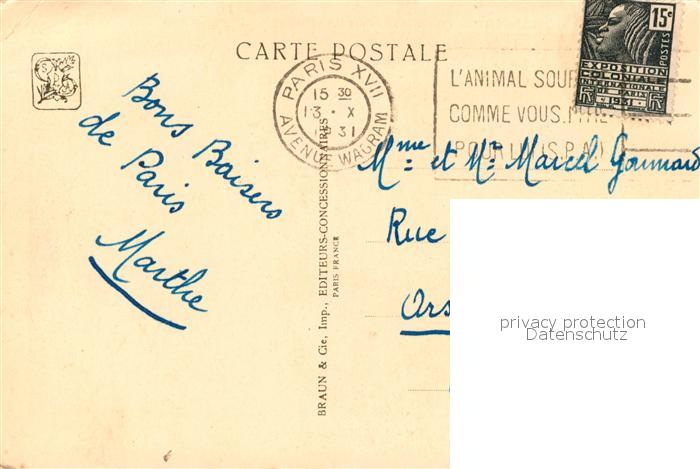 CARTE POSTALE
PARIS XVII
15 30
13 X
31
AVENUE WAGRAM
L'ANIMAL SOUF
COMME VOUS.
15c
POSTES
EXPOSITION
COLONIALE
INTERNATIONALE
DE PARIS
1931
Bons Baisers
de Paris
Marthe
BRAUN & Cie, Imp., EDITEURS-CONCESSIONNAIRES
PARIS FRANCE
Mme et Mr Marcel
Rue
Ars
privacy protection
Datenschutz